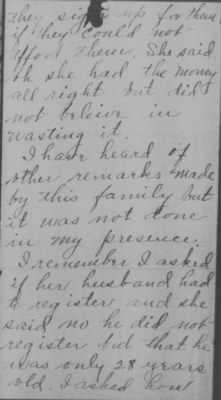 they sign up for them
if they could not
afford them. She said
oh she had the money
all right but did
not beleive in
wasting it.
I have heard of
other remarks made
by this family but
it was not done
in my presence.
I remember I asked
if her husband had
to register and she
said no he did not
register but that he
was only 28 years
old. I asked how